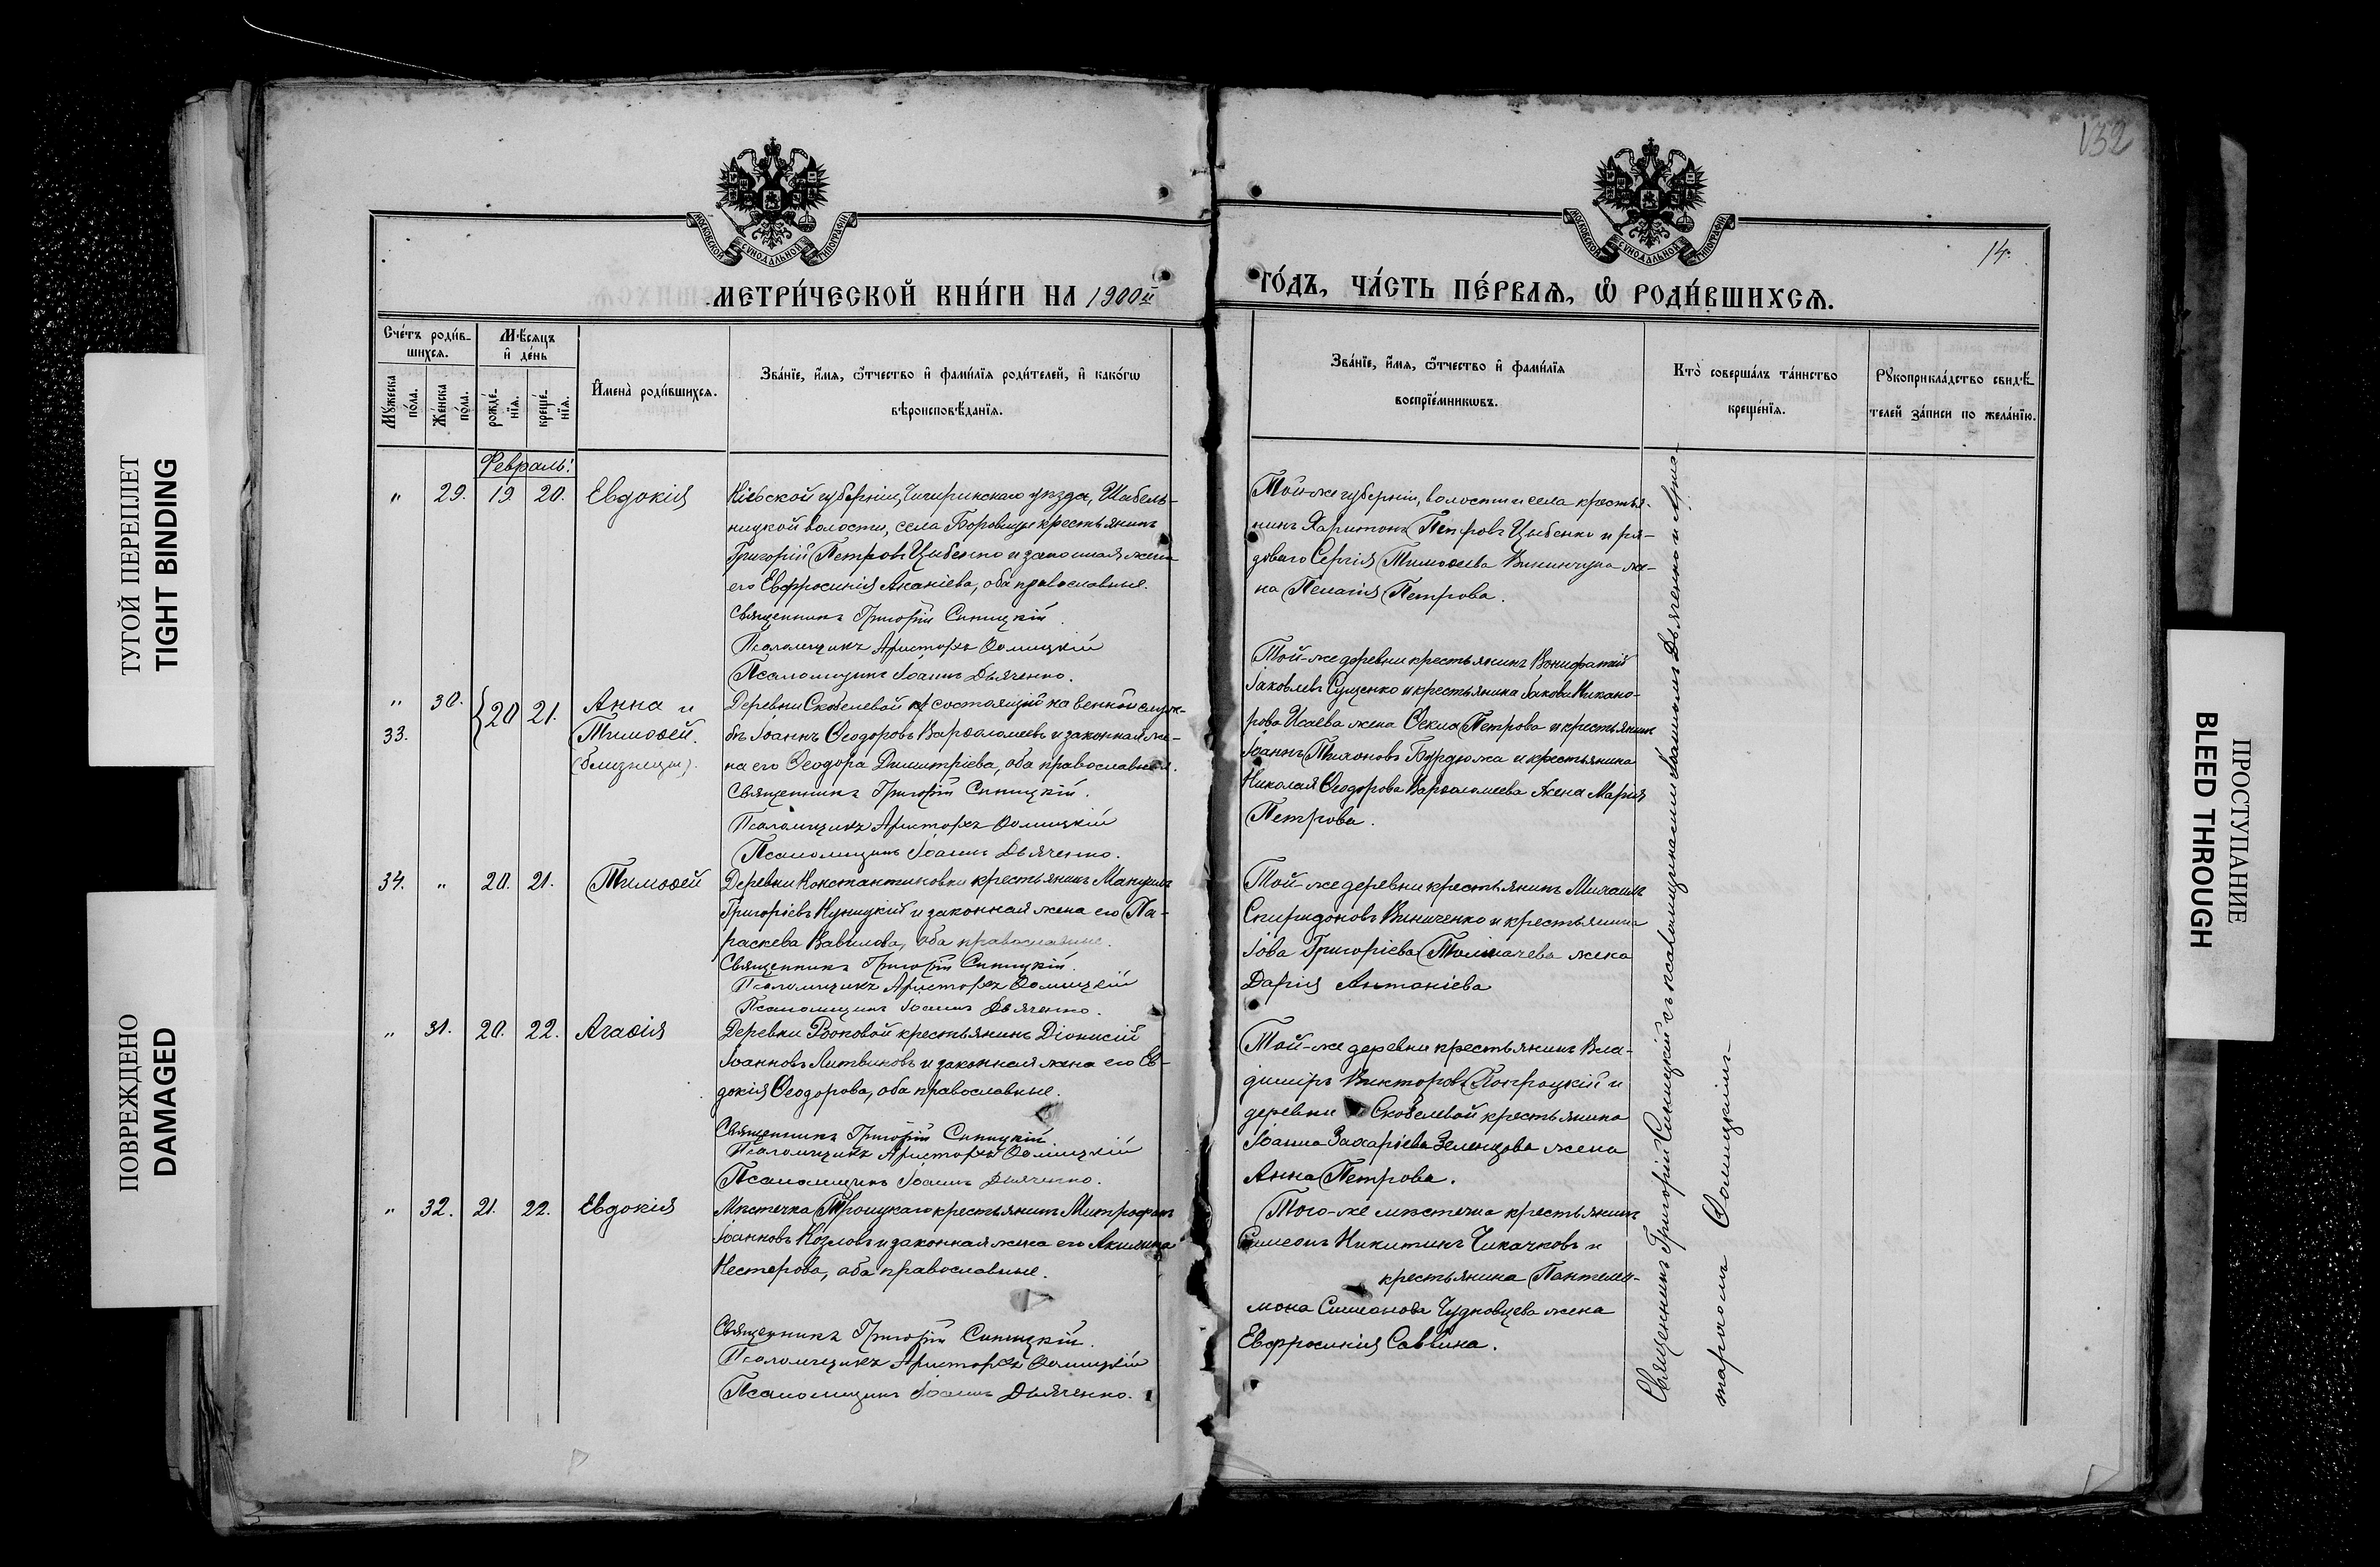 132
14.
МОСКОВСКОЙ СѴНОДАЛЬНОЙ ТИПОГРАФІИ
МОСКОВСКОЙ СѴНОДАЛЬНОЙ ТИПОГРАФІИ
МЕТРИ́ЧЕСКОЙ КНИ́ГИ НА 1900й
ГО́ДЪ, ЧА́СТЬ ПЕ́РВАѦ, Ѽ РОДИ́ВШИХСѦ.
Сче́тъ роди́в-
шихсѧ.
Мꙋ́жеска по́ла.
Же́нска по́ла.
Мѣ́сѧцъ
и҆ де́нь
рожде́-
нїѧ.
креще́-
нїѧ.
И҆мена̀ роди́вшихсѧ.
Зва́нїе, и҆́мѧ, ѻ҆́тчество и҆ фами́лїѧ роди́телей, и҆ како́гѡ
вѣроисповѣ́данїѧ.
Зва́нїе, и҆́мѧ, ѻ҆́тчество и҆ фами́лїѧ
воспрїе́мникѡвъ.
Кто̀ соверша́лъ та́инство
креще́нїѧ.
Рꙋкоприкла́дство свидѣ́-
телей за́писи по жела́нїю.
Февраль.
" 29. 19 20. Евдокія
Кіевской губерніи, Чигиринскаго уѣзда, Шабель-
ницкой волости, села Боровицы крестьянинъ
Григорій Петровъ Цыбенко и законная жена
его Евфросинія Акакіева, оба православные.
Священникъ Григорій Синицкій.
Псаломщикъ Аристархъ Ѳомицкій
Псаломщикъ Іоаннъ Дьяченко.
Той-же губерніи, волости и села крестья-
нинъ Харитонъ Петровъ Цыбенко и ря-
доваго Сергія Тимоѳеева жe-
на Пелагія Петрова.
" 30. 20 21. Анна и
33. Тимоѳей.
(близнецы).
Деревни Скобелевой состоящій на военной служ-
бѣ Іоаннъ Ѳеодоровъ Варѳоломеевъ и законная же-
на его Ѳеодора Димитріева, оба православные.
Священникъ Григорій Синицкій.
Псаломщикъ Аристархъ Ѳомицкій
Псаломщикъ Іоаннъ Дьяченко.
Той-же деревни крестьянинъ Вонифатій
Іаковлевъ Сущенко и крестьянина Іакова Никано-
рова Исаева жена Ѳекла Петрова и крестьянинъ
Іоаннъ Тихоновъ Бурдюжа и крестьянина
Николая Ѳеодорова Варѳоломеева жена Марія
Петрова.
34. " 20. 21. Тимоѳей
Деревни Константиновки крестьянинъ Мануилъ
Григоріевъ Куницкій и законная жена его Па-
раскева Вавилова, оба православные.
Священникъ Григорій Синицкій.
Псаломщикъ Аристархъ Ѳомицкій
Псаломщикъ Іоаннъ Дьяченко.
Той-же деревни крестьянинъ Михаилъ
Спиридоновъ Виниченко и крестьянина
Іова Григоріева Толмачева жена
Дарія Антоніева
" 31. 20. 22. Агаѳія
Деревни крестьянинъ Діонисій
Іоанновъ Литвиновъ и законная жена его Ев-
докія Ѳеодорова, оба православные.
Священникъ Григорій Синицкій.
Псаломщикъ Аристархъ Ѳомицкій
Псаломщикъ Іоаннъ Дьяченко.
Той-же деревни крестьянинъ Вла-
диміръ Викторовъ и
деревни Скобелевой крестьянина
Іоанна Захаріева Зеленцова жена
Анна Петрова.
" 32. 21. 22. Евдокія
Мѣстечка Троицкаго крестьянинъ Митрофанъ
Іоанновъ Козловъ и законная жена его Акилина
Нестерова, оба православные.
Священникъ Григорій Синицкій.
Псаломщикъ Аристархъ Ѳомицкій
Псаломщикъ Іоаннъ Дьяченко.
Того-же мѣстечка крестьянинъ
Симеонъ Никитинъ Чикачковъ и
крестьянина Пантелеи-
мона Симеонова Чудновцева жена
Евфросинія Саввина.
Священникъ Григорій Синицкій съ псаломщиками Іоанномъ Дьяченко и Арис-
тархомъ Ѳомицкимъ
ТУГОЙ ПЕРЕПЛЕТ
TIGHT BINDING
ПОВРЕЖДЕНО
DAMAGED
ПРОСТУПАНИЕ
BLEED THROUGH